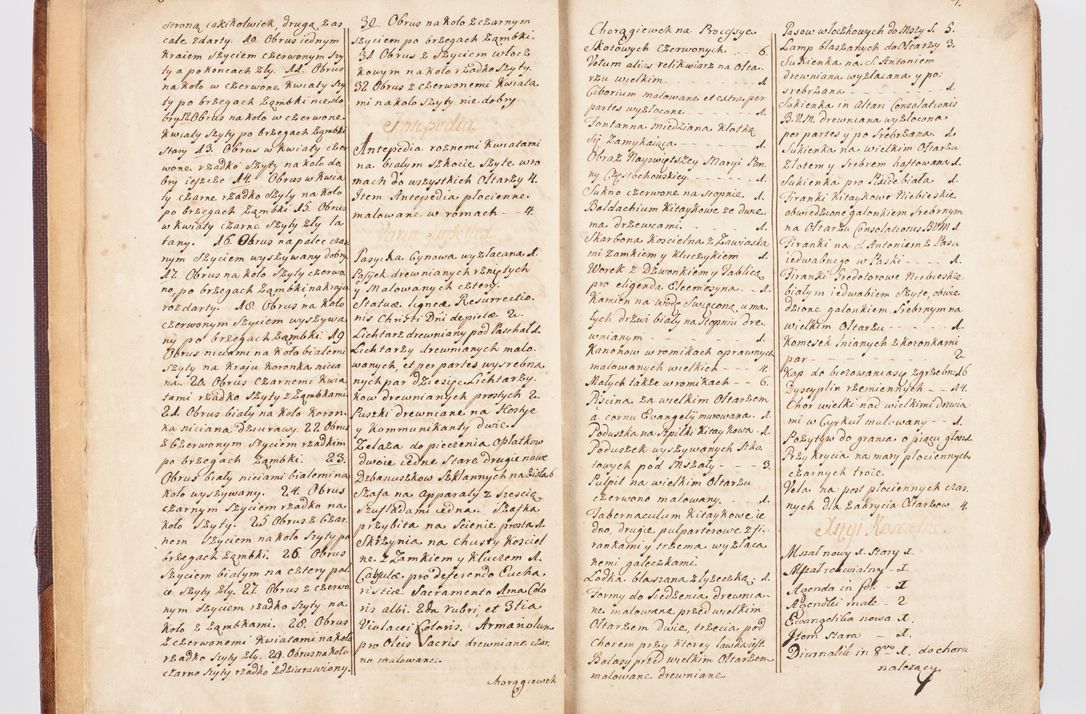 stroną iakikolwiek, drugą zas
cale zdarty. 10. Obrus iednym
kraiem szyciem czerwonym szy
ty a po koncach zły. 11. Obrus
na koło w czerwone kwiaty szy
ty po brzegach ząmbki niezło
bry 12 Obrus na koło w czerwone
kwiaty szyty po brzegach ząmbki
stary 13. Obrus w kwiaty czer
wone rzadko szyty na koło do
bry ieszcze 14. Obrus w kwia
ty czarne rzadko szyty na koło
po brzegach ząmbki 15. Obrus
w kwiaty czarne szyty zły ła
tany. 16. Obrus na palec czar
nym szyciem wyszywany dobry
17. Obrus na koło szyty czerwo
no, po brzegach ząmbki na kraju
rozdarty. 18. Obrus na koło
czerwonym szyciem wyszywa
ny po brzegach ząmbki. 19
Obrus nićiami na koło białemi
szyty na kraju koronka nicia
na. 20. Obrus czarnemi kwia
tami rzadko szyty z ząmbkami
21. Obrus biały na koło koron
ka niciana dziurawy. 22. Obrus
z czerwonym szyciem rzadkim
po brzegach ząmbki. 23.
Obrus biały niciami białemi na
koło wyszywany. 24. Obrus
czarnym szyciem rzadko na
koło szyty. 25 Obrus z czar
nem szyciem na koło szyty po
brzegach ząmbki. 26. Obrus
szyciem białym na cztery pol
ce szyty zły. 27. Obrus z czerwo
nym szyciem rzadko szyty na
koło z ząmbkami. 28. Obrus
z czerwonemi kwiatami na koło
rzadko szyty zły. 29. Obrus na koło
czarno szyty rzadko zdziurawiony.
30. Obrus na koło z czarnym
szyciem po brzegach ząmbki.
31 Obrus z szyciem włocz
kowym na koło rzadko szyty.
32 Obrus z czerwonemi kwiata
mi na koło szyty nie dobry.
Antepedia
Antepedia roznemi kwiatami
na białym szkocie szyte wro
mach do wszystkich Ołtarzy 4.
Item Antepedia płocienne
malowane w romach - - 4.
Pasyika Cynowa wyzłacana 1.
Pasyiek drewnianych rzniętych
y malowanych cztery.
Statuæ ligneæ Resurrectio
nis Christi Dni depictæ 2.
Lichtarz drewniany pod Paschał 1.
Lichtarzy drewnianych malo.
wanych, et per partes wysrebrza
nych par dziesięc. Lichtarzy.
kow drewnianych prostych 2.
Puszki drewniane na Hostye
y kommunikanty dwie.
Zelaza do pieczenia Opłatkow
dwoie iedne stare drugie nowe
Dzbanuszkow szklannych na zioła 6
Szafa na apparaty z szescią
szufladami iedna. Szafka
przybita na scienie prosta 1.
Skrzynia na chusty kosciel
ne z zamkiem y kluczem 1.
Capsulæ pro deferendo Eucha
ristiæ Sacramento 1ma Colo
ris albi. 2da rubri et 3tia
Violacei Coloris. Armarolum
pro Oleis Sacris drewniane czar.
no malowane.
chorągiewek
Chorągiewek na Processye
Skotowych czerwonych. - - 6.
Votum alias relikwiarz na Ołta.
rzu wielkim - - - 1.
Ciborium malowane et extra per
partes wyzłocone - - 1.
Fontanna miedziana klotką
się zamykaiąca - - 1.
Obraz Nayswiętszey Maryi Pan.
ny Częstochowskiey - - 1.
Sukno czerwone na stopnie 1.
Baldachium kitaykowe ze dwie
ma drzewcami - - 1.
Skarbona koscielna z zawiaska
mi zamkiem y kluczykiem 1.
Worek z dzwonkiem y tablica
pro eligenda Eleemosyna 1.
Kamien na wodę swięconę, u ma
łych drzwi biały na stopniu dre
wnianym - - 1.
Kanonow w romikach oprawnych
malowanych wielkich - - 4.
Małych takze w romikach - - 6.
Piscina za wielkim Ołtarzem
a cornu Evangelij murowana. 1.
Poduszka na szpilki kitaykowa 1.
Poduszek wyszywanych szko
towych pod Mszały - - 3.
Pulpit na wielkim Ołtarzu
czerwono malowany. - - 1.
Tabernaculum kitaykowe ie
dno, drugie pulparterowe z fi
rankami y trzema wyzłaca
nemi gałeczkami.
Łodka blaszana z łyzeczką; 1.
Formy do siedzenia drewnia
ne malowane przed wielkim
Ołtarzem dwie, trzecia pod
Chorem przy ktorey ławka ist.
Balasy przed wielkim Ołtarzem
malowane drewniane.
4.
Pasow włoczkowych do Mszy S. 5.
Lamp blaszanych do Ołtarzy 3.
Sukienka na S. Antoniem
drewniana wyzłacana y po:
srebrzana - - 1.
Sukienka in Altari Consolationis
B.V.M. drewniana wyzłocona
per partes y po srebrzana. 1.
Sukienka na wielkim Ołtarzu
złotem y srebrem haftowana 1.
Sukienka pro Piside biała 1.
Firanki kitaykowe Niebieskie
obwiedzione galonkiem srebrnym
na Ołtarzu Consolationis BVM 1.
Firanki na S. Antoniem z Pasu
iedwabnego w Paski - - 1.
Firanki Gredolorowe Niebieskie
białym iedwabiem szyte, obwie.
dzione galonkiem srebrnym na
wielkim Ołtarzu - - 1.
Komezek Inianych z koronkami
par - - 2.
Kap do bierzowaniasy zgrzebnych 6
Dyscyplin rzemiennych - - 14.
Chor wielki nad wielkimi drzwia
mi w Cyrkuł malowany - 1.
Pozytyw do grania o pięcu głosach 1.
Przykrycia na mary płociennych
czarnych troie.
Vela na post płociennych czar.
nych dla zakrycia Ołtarzow 4.
Xięgi Koscielne
Mszał nowy 1. Stary 1.
Mszał rekwialny - 1.
Agenda in fol. - 1.
Agendki małe - 2
Ewangeliba nowa 1.
Item stara - 1.
Diurnalia in 8vo 1. do choru
nalezący.